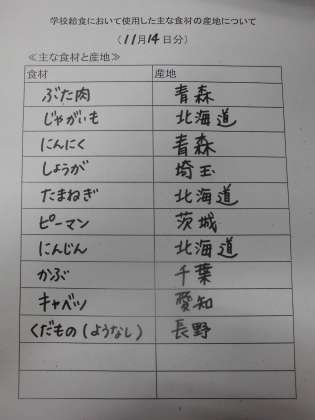 学校給食において使用した主な食材の産地について
（11月14日分）
≪主な食材と産地≫
食材 産地
ぶた肉 青森
じゃがいも 北海道
にんにく 青森
しょうが 埼玉
たまねぎ 北海道
ピーマン 茨城
にんじん 北海道
かぶ 千葉
キャベツ 愛知
くだもの（ようなし） 長野